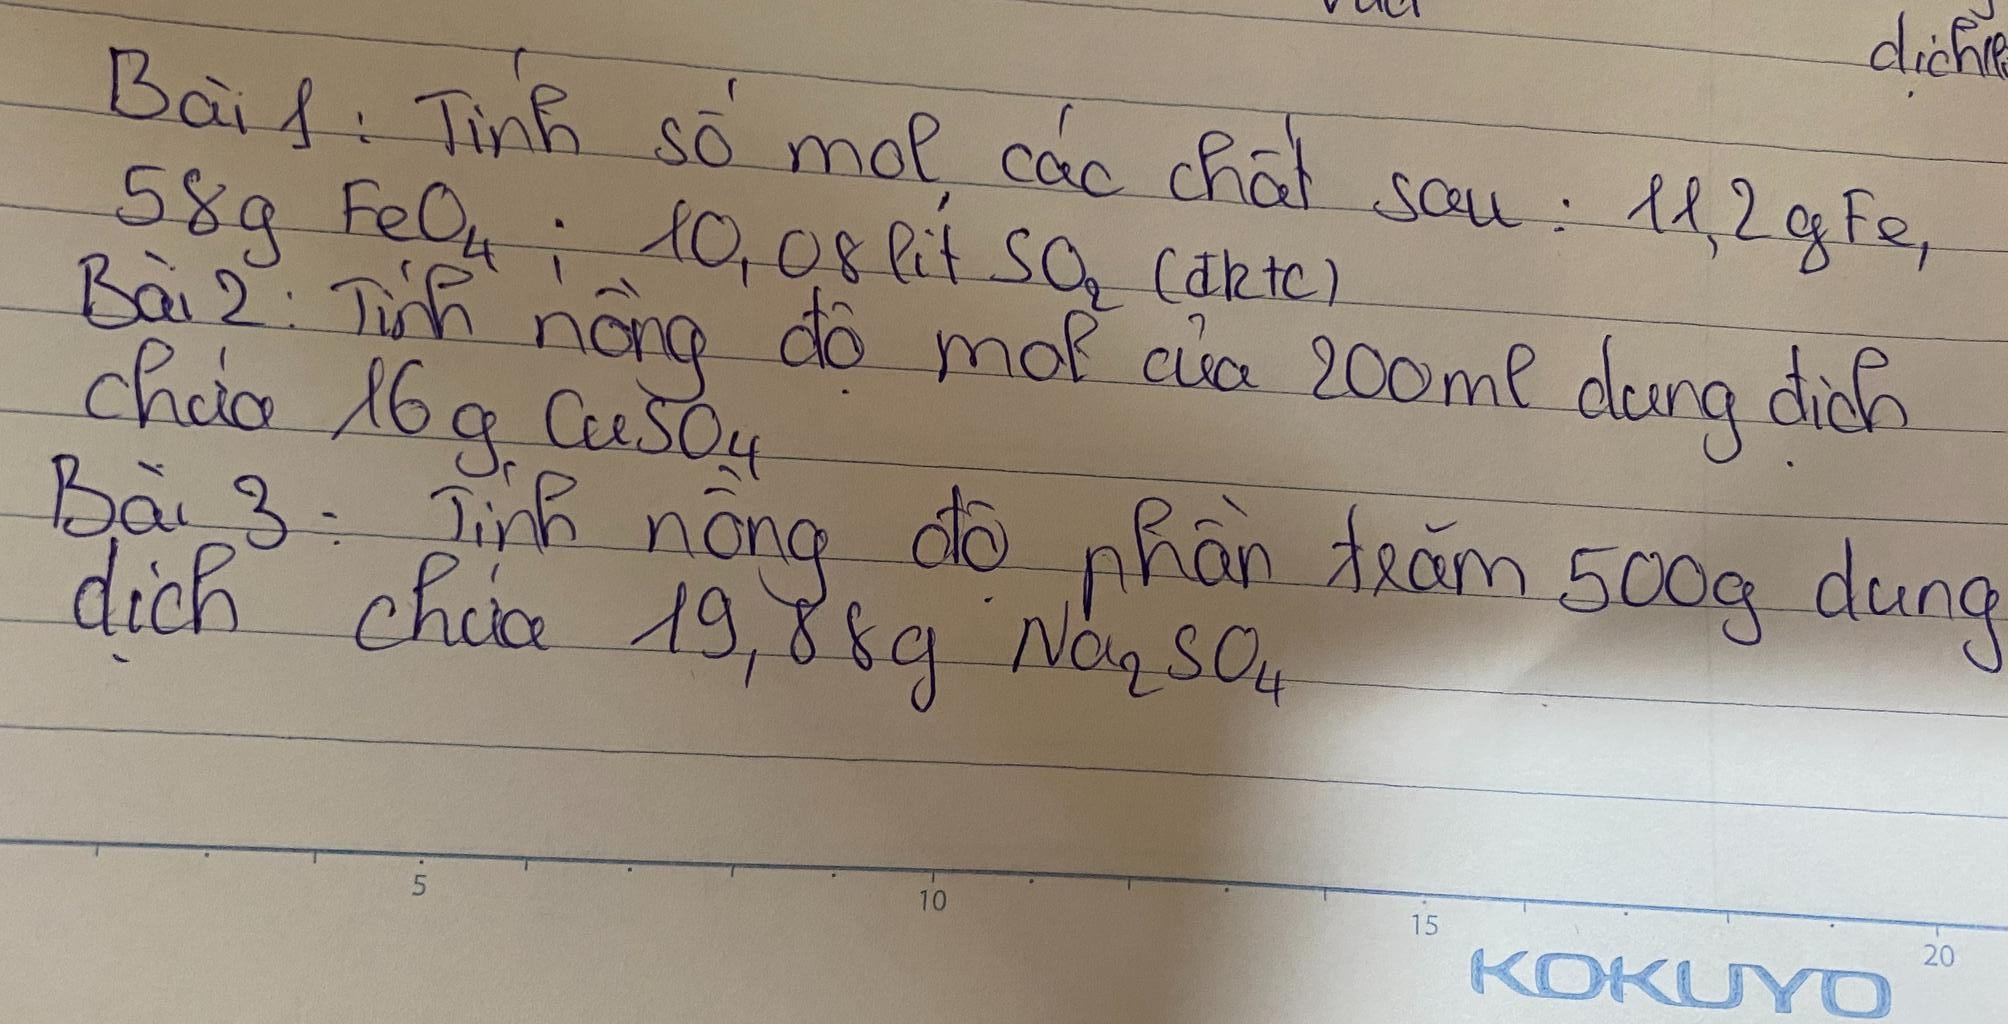 dịch
Bài 1 : Tính số mol các chất sau : 11,2g Fe,
58g FeO₄ ; 10,08 lít SO₂ (đktc)
Bài 2 : Tính nồng độ mol của 200ml dung dịch
chứa 16g CuSO₄
Bài 3 : Tính nồng độ phần trăm 500g dung
dịch chứa 19,88g Na₂SO₄
5 10 15 20
KOKUYO